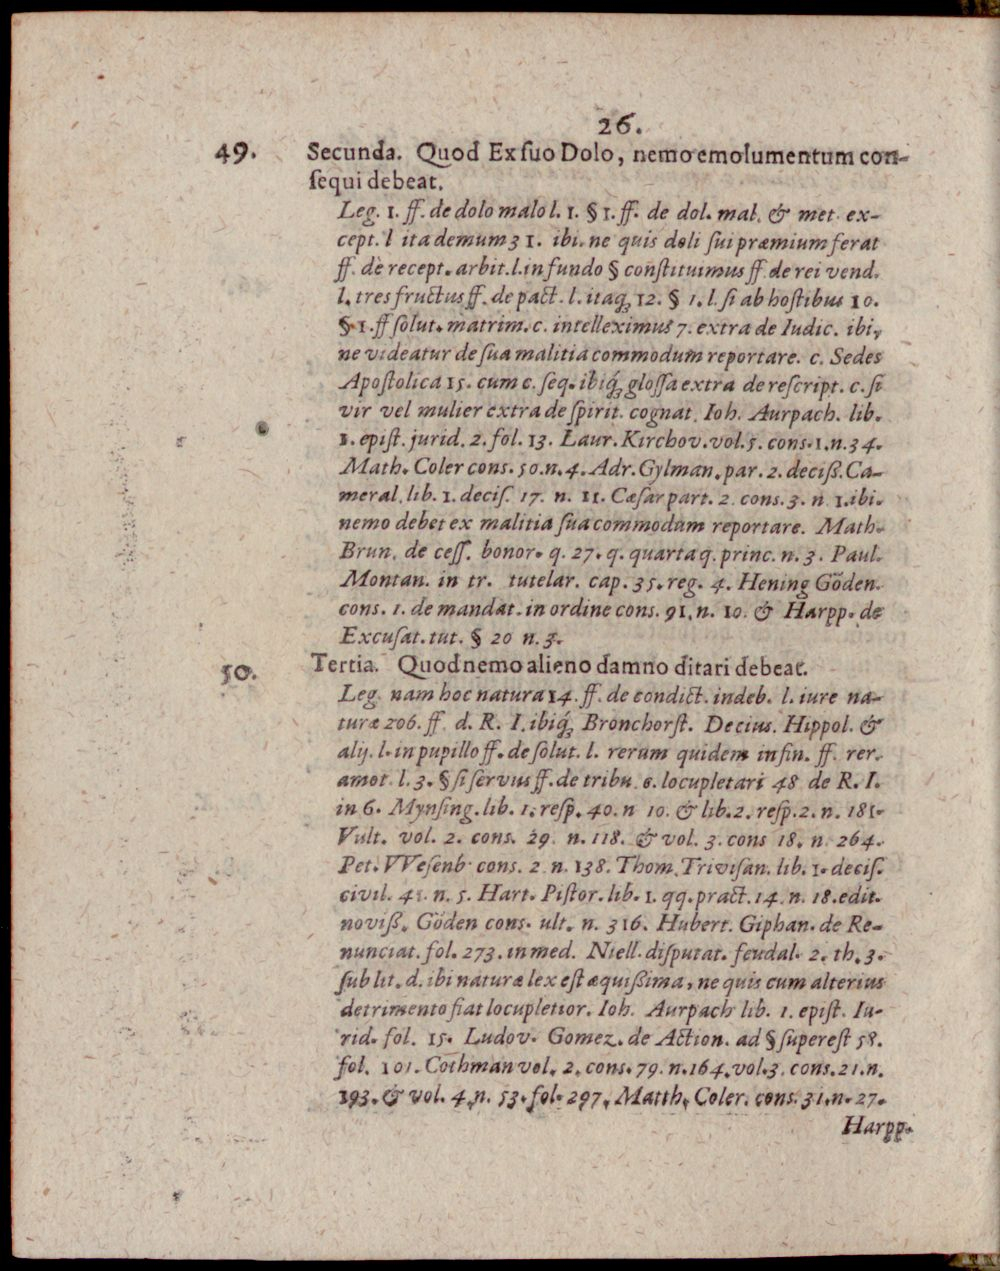 26.
49. Secunda. Quod Ex ſuo Dolo, nemo emolumentum con-
ſequi debeat.
Leg. 1. ff. de dolo malo l. 1. § 1. ff. de dol. mal. & met. ex-
cept. l ita demum 31. ibi. ne quis doli ſui præmium ferat
ff. de recept. arbit. l. in fundo § conſtituimus ff. de rei vend.
l. tres fructus ff. de pact. l. itaq; 12. § 1. l. ſi ab hoſtibus 10.
§ 1. ff ſolut. matrim. c. intelleximus 7. extra de Iudic. ibi,
ne videatur de ſua malitia commodum reportare. c. Sedes
Apoſtolica 15. cum c. ſeq. ibiq́; gloſſa extra de reſcript. c. ſi
vir vel mulier extra de ſpirit. cognat. Ioh. Aurpach. lib.
1. epiſt. jurid. 2. fol. 13. Laur. Kirchov. vol. 5. cons. 1. n. 34.
Math. Coler cons. 50. n. 4. Adr. Gylman. par. 2. deciß. Ca-
meral. lib. 1. deciſ. 17. n. 11. Cæſar part. 2. cons. 3. n. 1. ibi.
nemo debet ex malitia ſua commodum reportare. Math.
Brun. de ceſſ. bonor. q. 27. q. quarta q. princ. n. 3. Paul.
Montan. in tr. tutelar. cap. 35. reg. 4. Hening Göden.
cons. 1. de mandat. in ordine cons. 91. n. 10. & Harpp. de
Excuſat. tut. § 20 n. 3.
50. Tertia. Quod nemo alieno damno ditari debeat.
Leg. nam hoc natura 14. ff. de condict. indeb. l. iure na-
turæ 206. ff. d. R. I. ibiq́; Bronchorſt. Decius. Hippol. &
alij. l. in pupillo ff. de ſolut. l. rerum quidem in fin. ff. rer.
amot. l. 3. § ſi ſervus ff. de tribu. c. locupletari 48 de R. I.
in 6. Mynſing. lib. 1. reſp. 40. n 10. & lib. 2. reſp. 2. n. 181.
Vult. vol. 2. cons. 29. n. 118. & vol. 3. cons 18. n. 264.
Pet. VVeſenb cons. 2. n. 138. Thom. Triviſan. lib. 1. deciſ.
civil. 41. n. 5. Hart. Piſtor. lib. 1. qq. pract. 14. n. 18. edit.
noviß. Göden cons. ult. n. 316. Hubert. Giphan. de Re-
nunciat. fol. 273. in med. Niell. diſputat. feudal. 2. th. 3.
ſub lit. d. ibi naturæ lex eſt æquißima, ne quis cum alterius
detrimento fiat locupletior. Ioh. Aurpach lib. 1. epiſt. Iu-
rid. fol. 15. Ludov. Gomez. de Action. ad § ſupereſt 58.
fol. 101. Cothman vol. 2. cons. 79. n. 164. vol. 3. cons. 21. n.
193. & vol. 4. n. 53. fol. 297. Matth. Coler. cons. 31. n. 27.
Harpp.